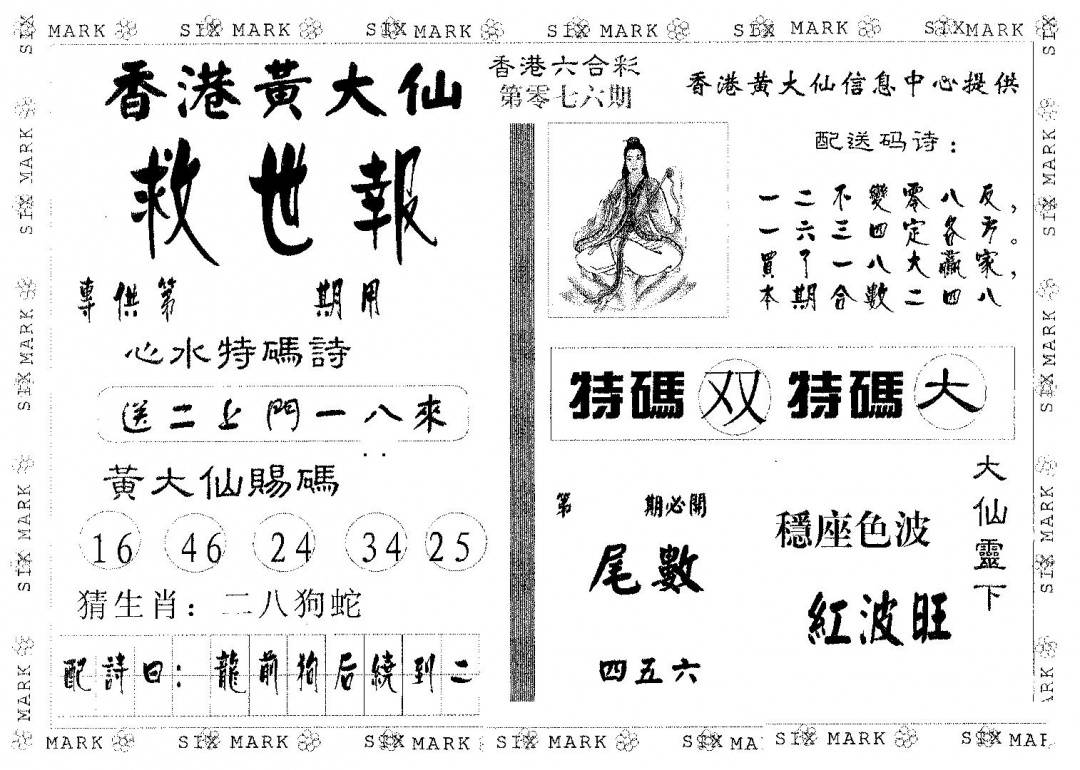 SIX MARK SIX MARK SIX MARK SIX MARK SIX MARK SIX MARK
香港黃大仙
救世報
專供第 期用
心水特碼詩
送二上門一八來
黃大仙賜碼
16 46 24 34 25
猜生肖：二八狗蛇
配詩曰：龍前狗后繞到二
香港六合彩
第零七六期
香港黄大仙信息中心提供
配送码诗：
一二不變零八反，
一六三四定各方。
買了一八大贏家，
本期合數二四八
特碼 双 特碼 大
第 期必開
尾數
四五六
穩座色波
紅波旺
大仙靈下
SIX MARK
SIX MARK
SIX MARK
MARK
SIX
SIX MARK
SIX MARK
SIX MARK
ARK
MARK SIX MARK SIX MARK SIX MARK SIX MA SIX MARK SIX MAR